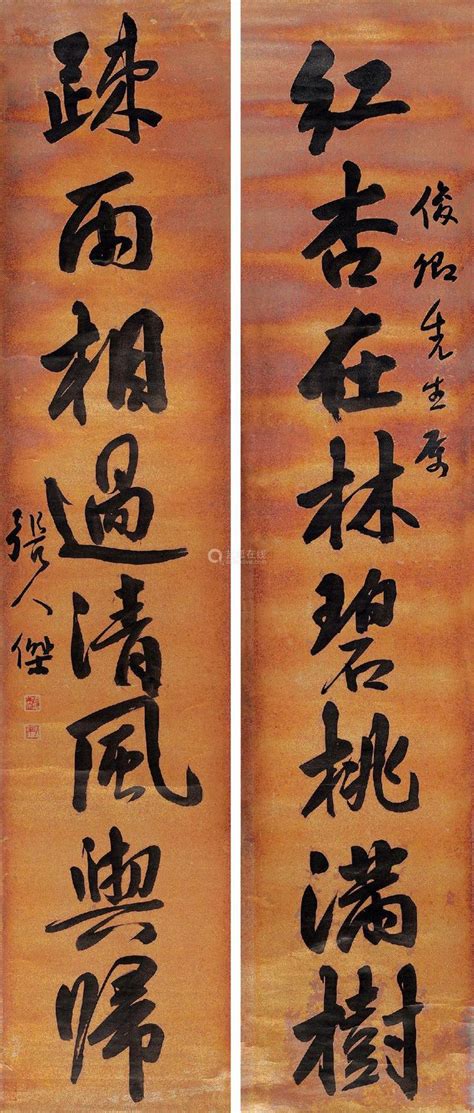 红杏在林碧桃满樹
俊卿先生属
踈雨相過清風與歸
張人傑